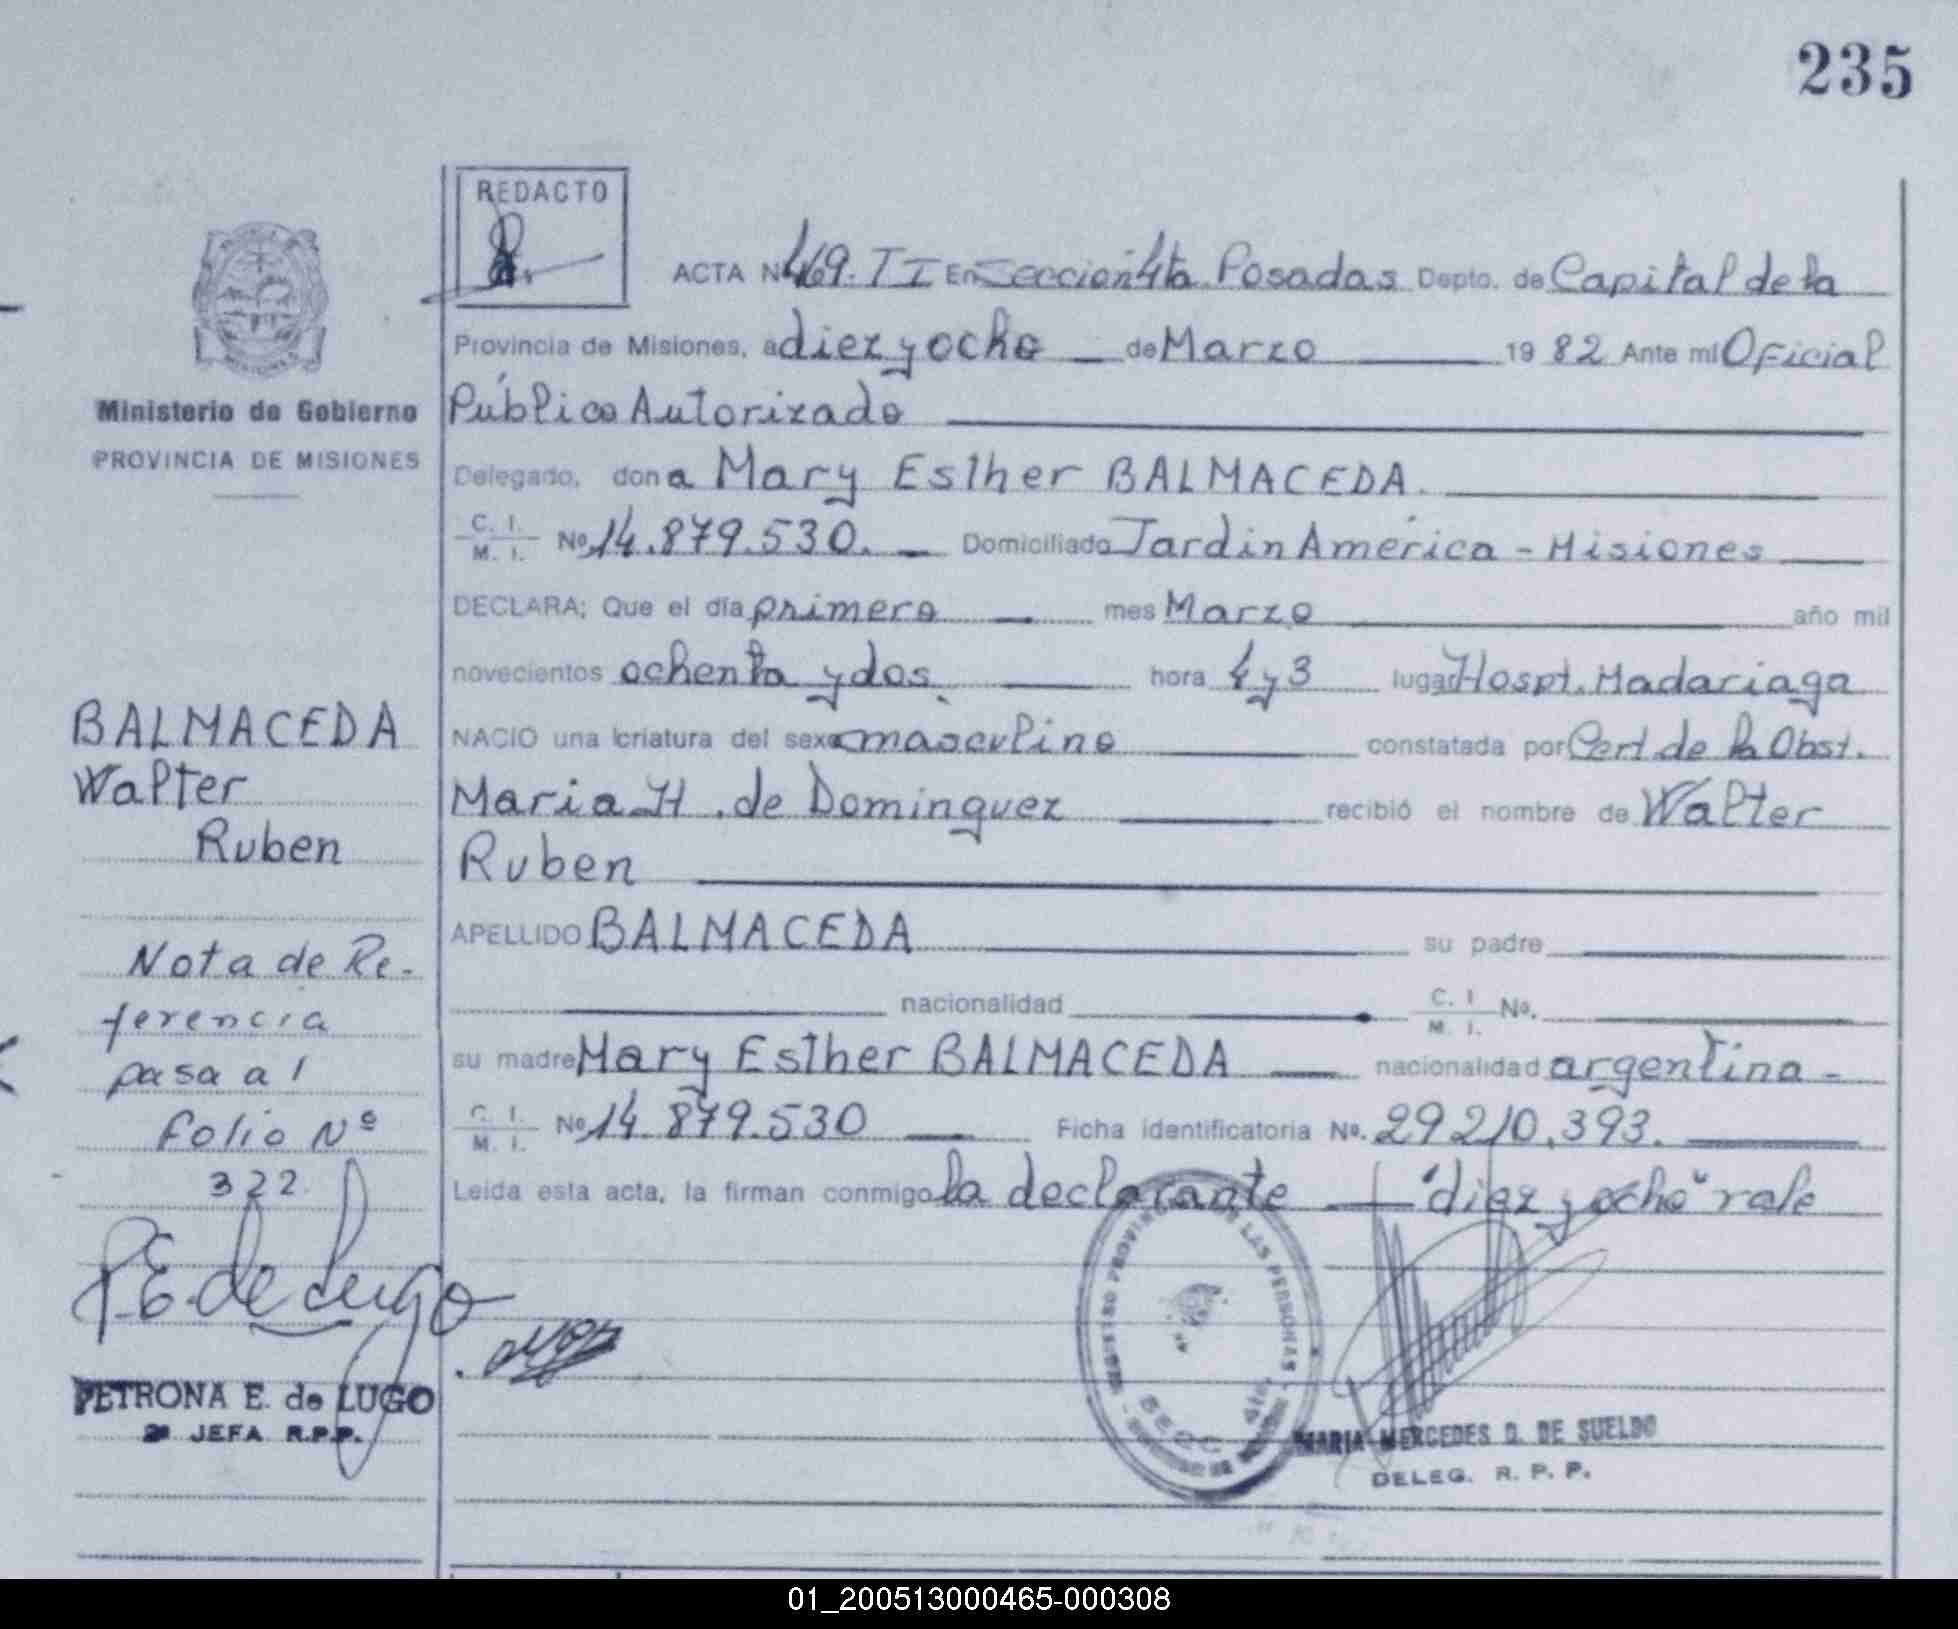 235
REDACTO
ACTA Nº 469. II En Sección 4ta. Posadas Depto. de Capital de la
Provincia de Misiones, a diez y ocho — de Marzo — 19 82 Ante mí Oficial
Público Autorizado
Delegado, don a Mary Esther BALMACEDA.
C. I. / M. I. Nº 14.879.530. — Domiciliado Jardin América - Misiones
DECLARA; Que el día primero — mes Marzo — año mil
novecientos ochenta y dos. — hora 4 y 3 lugar Hospt. Madariaga
NACIO una criatura del sexo masculino — constatada por Cert. de la Obst.
Maria H. de Dominguez — recibió el nombre de Walter
Ruben
APELLIDO BALMACEDA — su padre —
— nacionalidad — C. I. / M. I. Nº. —
su madre Mary Esther BALMACEDA — nacionalidad argentina -
C. I. / M. I. Nº 14.879.530 — Ficha identificatoria Nº. 29210.393. —
Leida esta acta, la firman conmigo la declarante — "diez y ocho" vale
Ministerio de Gobierno
PROVINCIA DE MISIONES
BALMACEDA
Walter
Ruben
Nota de Re-
ferencia
pasa al
folio Nº
322.
P.E. de Lugo
PETRONA E. de LUGO
2ª JEFA R.P.P.
REGISTRO PROVINCIAL DE LAS PERSONAS
SECC 4ta.
MARIA MERCEDES D. DE SUELDO
DELEG. R. P. P.
01_200513000465-000308